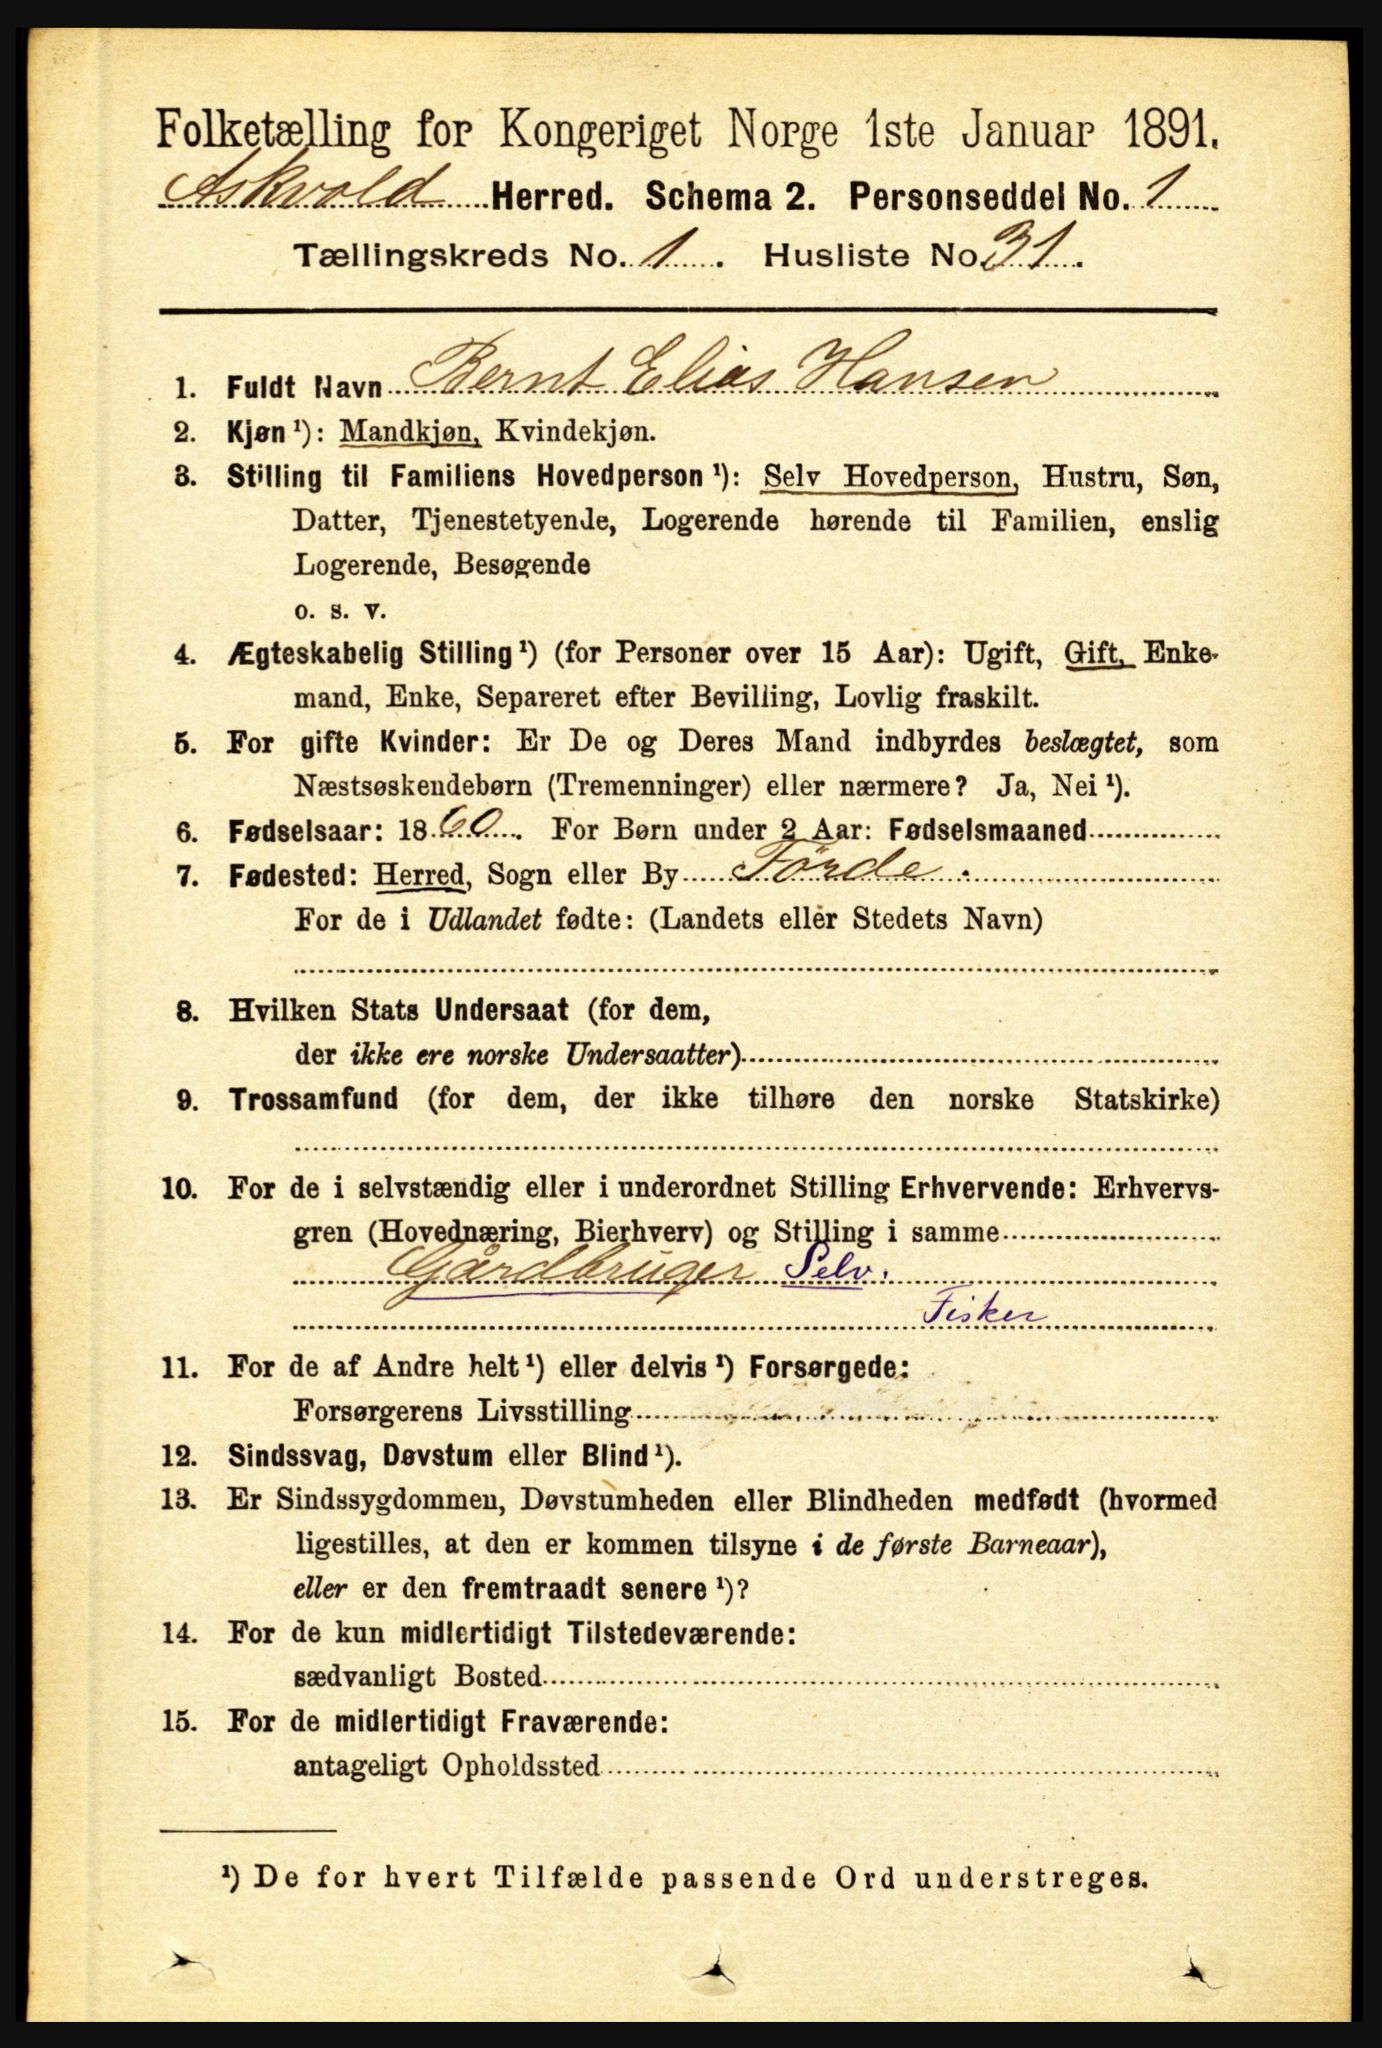 Folketælling for Kongeriget Norge 1ste Januar 1891.
Askvold Herred. Schema 2. Personseddel No. 1
Tællingskreds No. 1. Husliste No. 31.
1. Fuldt Navn Bernt Elias Hansen
2. Kjøn¹): Mandkjøn, Kvindekjøn.
3. Stilling til Familiens Hovedperson¹): Selv Hovedperson, Hustru, Søn,
Datter, Tjenestetyende, Logerende hørende til Familien, enslig
Logerende, Besøgende
o. s. v.
4. Ægteskabelig Stilling¹) (for Personer over 15 Aar): Ugift, Gift, Enke-
mand, Enke, Separeret efter Bevilling, Lovlig fraskilt.
5. For gifte Kvinder: Er De og Deres Mand indbyrdes beslægtet, som
Næstsøskendebørn (Tremenninger) eller nærmere? Ja, Nei¹).
6. Fødselsaar: 1860. For Børn under 2 Aar: Fødselsmaaned
7. Fødested: Herred, Sogn eller By Førde.
For de i Udlandet fødte: (Landets eller Stedets Navn)
8. Hvilken Stats Undersaat (for dem,
der ikke ere norske Undersaatter)
9. Trossamfund (for dem, der ikke tilhøre den norske Statskirke)
10. For de i selvstændig eller i underordnet Stilling Erhvervende: Erhvervs-
gren (Hovednæring, Bierhverv) og Stilling i samme
Gårdbruger Selv.
Fisker
11. For de af Andre helt¹) eller delvis¹) Forsørgede:
Forsørgerens Livsstilling
12. Sindssvag, Døvstum eller Blind¹).
13. Er Sindssygdommen, Døvstumheden eller Blindheden medfødt (hvormed
ligestilles, at den er kommen tilsyne i de første Barneaar),
eller er den fremtraadt senere¹)?
14. For de kun midlertidigt Tilstedeværende:
sædvanligt Bosted
15. For de midlertidigt Fraværende:
antageligt Opholdssted
¹) De for hvert Tilfælde passende Ord understreges.